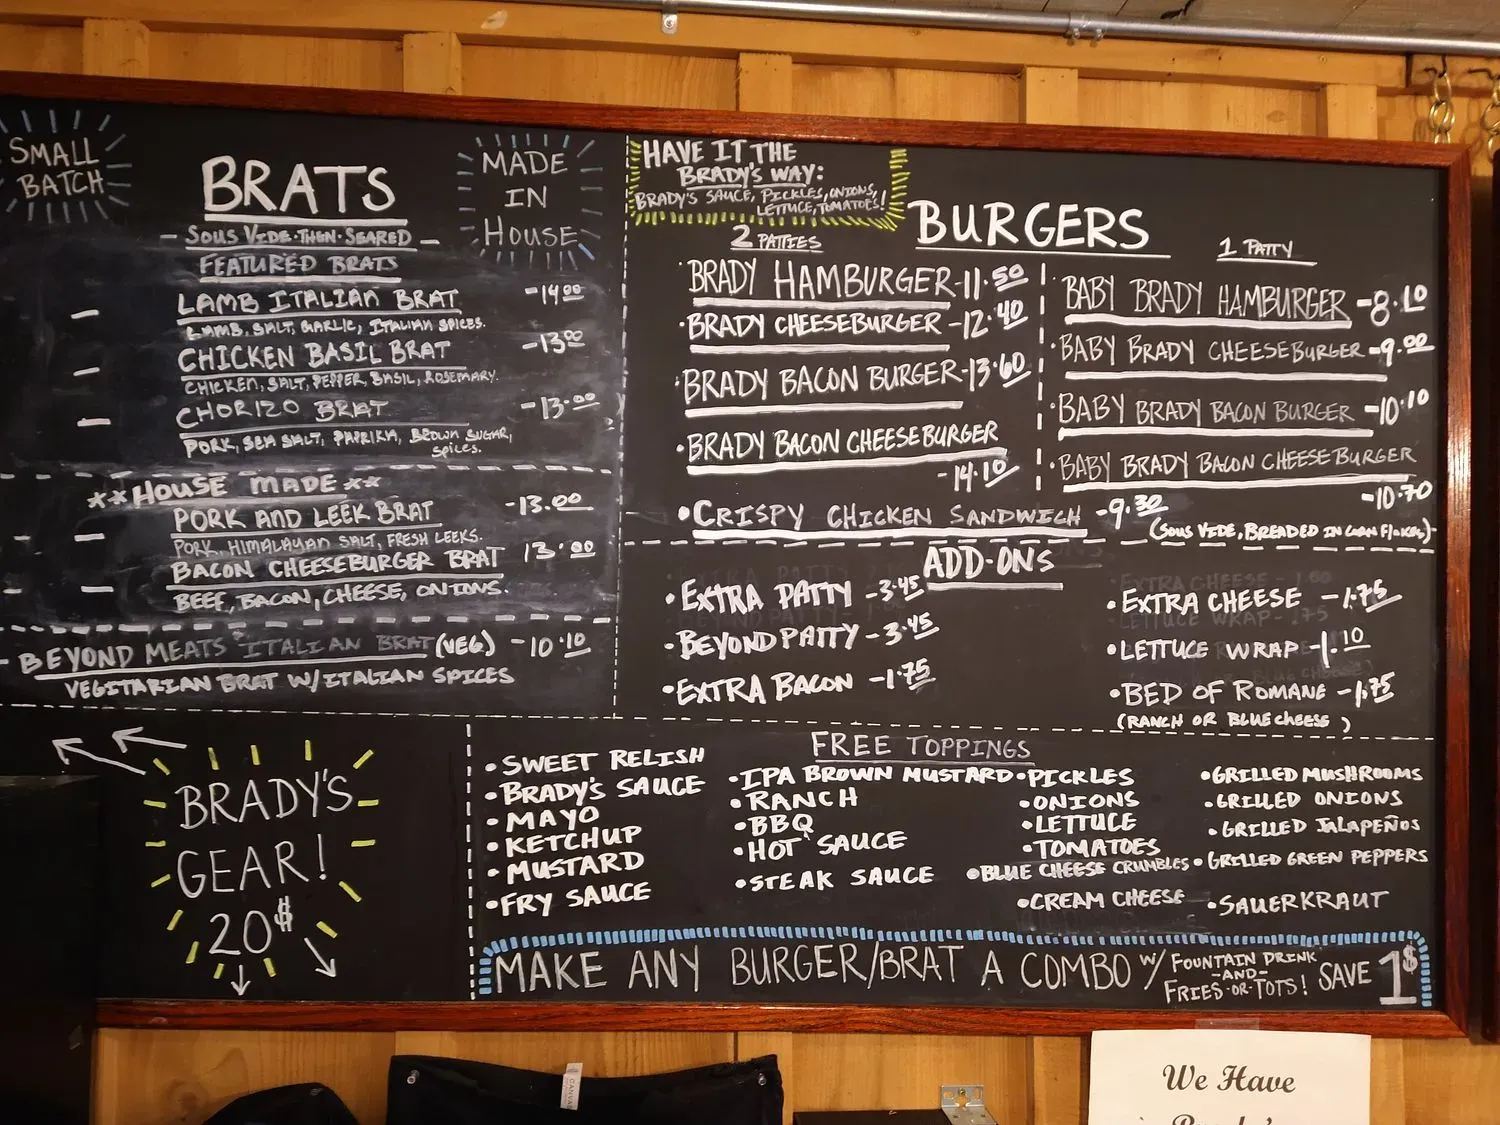 SMALL
BATCH
BRATS
MADE
IN
HOUSE
- SOUS VIDE·THEN·SEARED -
FEATURED BRATS
LAMB ITALIAN BRAT -14.00
LAMB, SALT, GARLIC, ITALIAN SPICES.
CHICKEN BASIL BRAT -13.00
CHICKEN, SALT, PEPPER, BASIL, ROSEMARY.
CHORIZO BRAT -13.00
PORK, SEA SALT, PAPRIKA, BROWN SUGAR,
SPICES.
**HOUSE MADE**
PORK AND LEEK BRAT -13.00
PORK, HIMALAYAN SALT, FRESH LEEKS.
BACON CHEESEBURGER BRAT 13.00
BEEF, BACON, CHEESE, ONIONS.
BEYOND MEATS ITALIAN BRAT (VEG) -10.10
VEGITARIAN BRAT W/ITALIAN SPICES
HAVE IT THE
BRADY'S WAY:
BRADY'S SAUCE, PICKLES, ONIONS,
LETTUCE, TOMATOES!
BURGERS
2 PATTIES
·BRADY HAMBURGER-11.50
·BRADY CHEESEBURGER -12.40
·BRADY BACON BURGER-13.60
·BRADY BACON CHEESEBURGER
-14.10
1 PATTY
·BABY BRADY HAMBURGER -8.10
·BABY BRADY CHEESEBURGER -9.00
·BABY BRADY BACON BURGER -10.10
·BABY BRADY BACON CHEESEBURGER
-10.70
·CRISPY CHICKEN SANDWICH -9.30
(SOUS VIDE, BREADED IN CORN FLAKES)
ADD-ONS
·EXTRA PATTY -3.45
·BEYOND PATTY -3.45
·EXTRA BACON -1.75
·EXTRA CHEESE -1.75
·LETTUCE WRAP -1.10
·BED OF ROMANE -1.75
(RANCH OR BLUE CHEESE)
BRADY'S
GEAR!
20$
FREE TOPPINGS
·SWEET RELISH
·BRADY'S SAUCE
·MAYO
·KETCHUP
·MUSTARD
·FRY SAUCE
·IPA BROWN MUSTARD
·RANCH
·BBQ
·HOT SAUCE
·STEAK SAUCE
·PICKLES
·ONIONS
·LETTUCE
·TOMATOES
·BLUE CHEESE CRUMBLES
·CREAM CHEESE
·GRILLED MUSHROOMS
·GRILLED ONIONS
·GRILLED JALAPEÑOS
·GRILLED GREEN PEPPERS
·SAUERKRAUT
MAKE ANY BURGER/BRAT A COMBO W/ FOUNTAIN DRINK
-AND-
FRIES-OR-TOTS! SAVE 1$
We Have